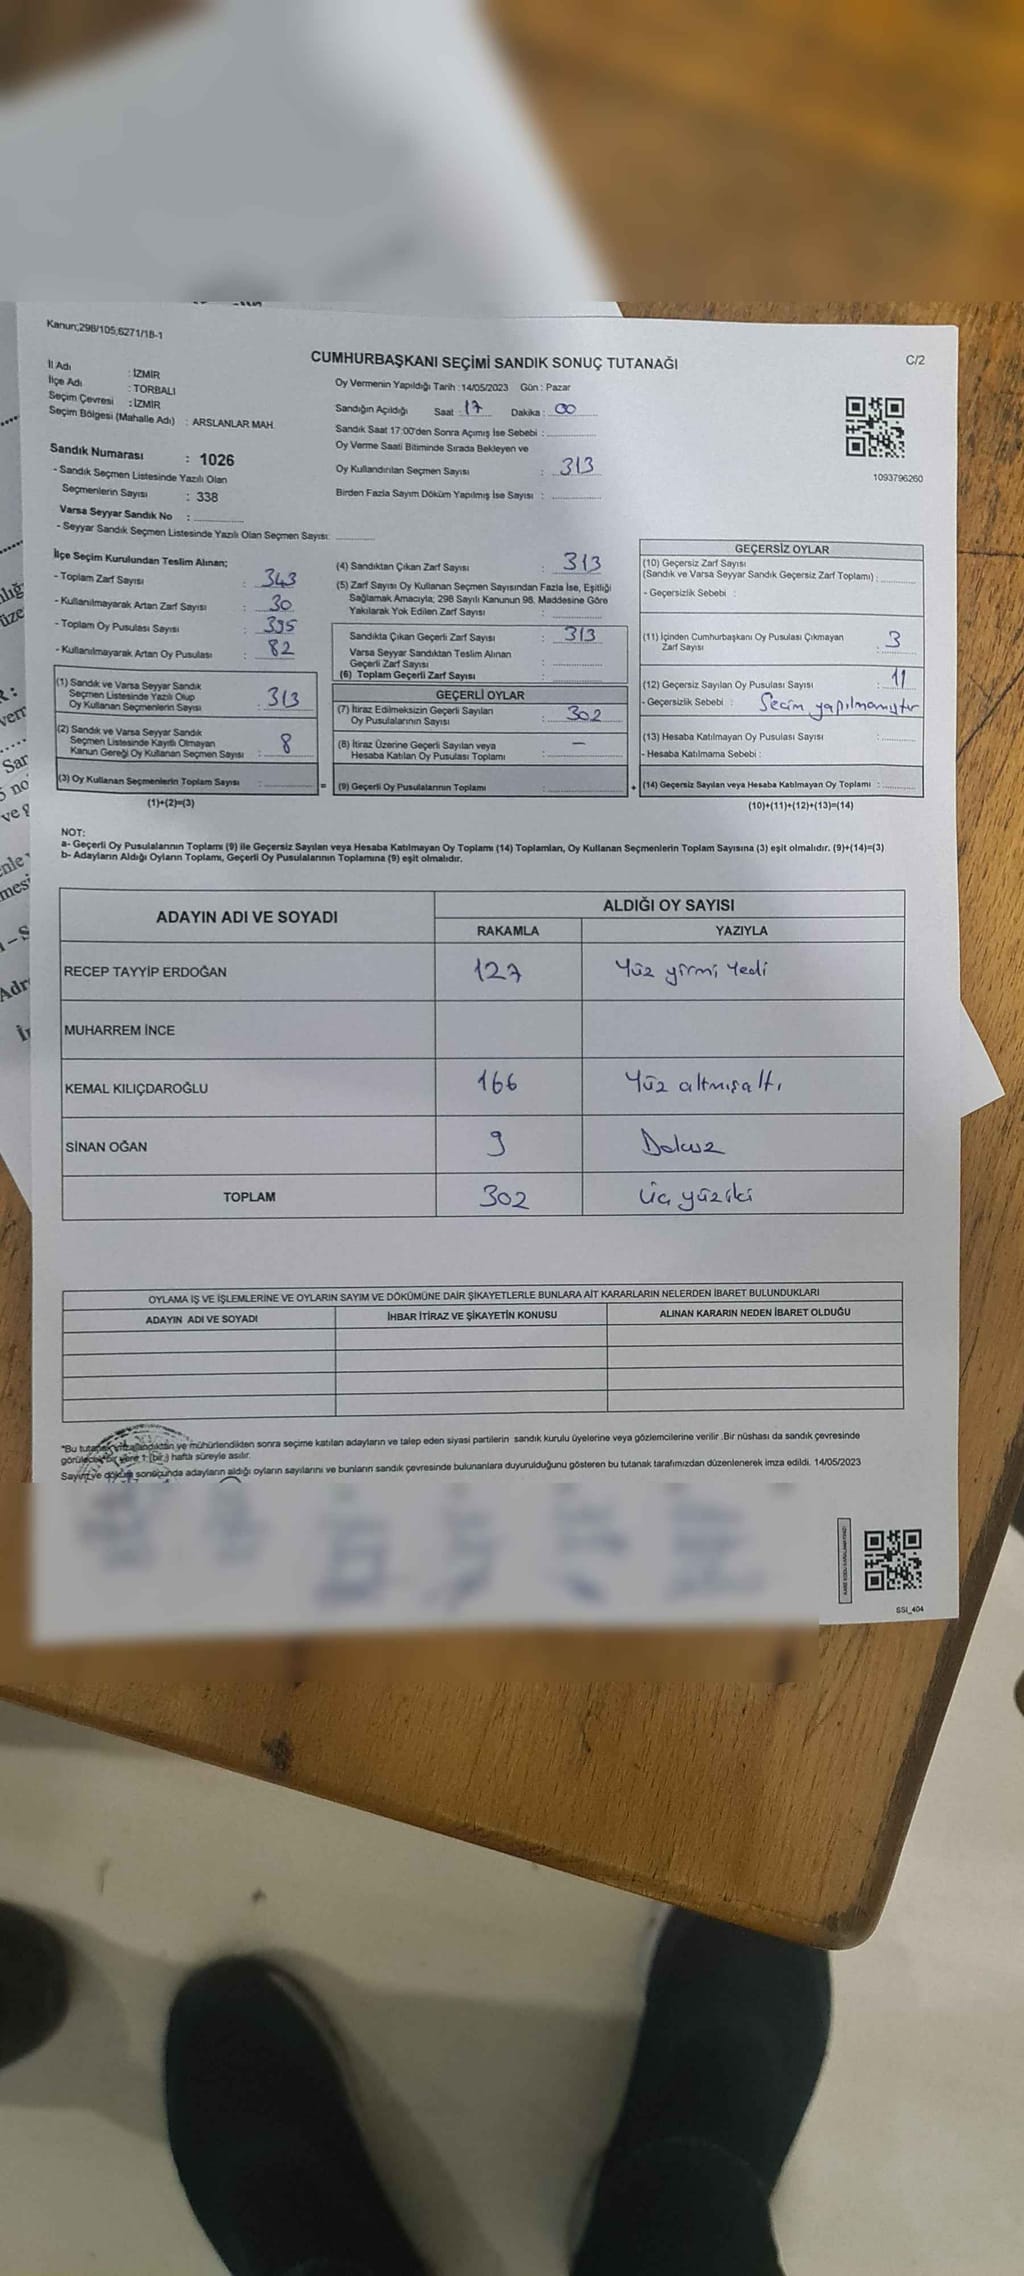 Kanun;298/105,6271/18-1
CUMHURBAŞKANI SEÇİMİ SANDIK SONUÇ TUTANAĞI
C/2
İl Adı : İZMİR
İlçe Adı : TORBALI
Seçim Çevresi : İZMİR
Seçim Bölgesi (Mahalle Adı) : ARSLANLAR MAH.
Sandık Numarası : 1026
- Sandık Seçmen Listesinde Yazılı Olan
Seçmenlerin Sayısı : 338
Varsa Seyyar Sandık No :
- Seyyar Sandık Seçmen Listesinde Yazılı Olan Seçmen Sayısı:
Oy Vermenin Yapıldığı Tarih : 14/05/2023 Gün : Pazar
Sandığın Açıldığı Saat : 17 Dakika : 00
Sandık Saat 17:00'den Sonra Açımış İse Sebebi :
Oy Verme Saati Bitiminde Sırada Bekleyen ve
Oy Kullandırılan Seçmen Sayısı : 313
Birden Fazla Sayım Döküm Yapılmış İse Sayısı :
1093796260
İlçe Seçim Kurulundan Teslim Alınan;
- Toplam Zarf Sayısı : 343
- Kullanılmayarak Artan Zarf Sayısı : 30
- Toplam Oy Pusulası Sayısı : 395
- Kullanılmayarak Artan Oy Pusulası : 82
(1) Sandık ve Varsa Seyyar Sandık
Seçmen Listesinde Yazılı Olup
Oy Kullanan Seçmenlerin Sayısı : 313
(2) Sandık ve Varsa Seyyar Sandık
Seçmen Listesinde Kayıtlı Olmayan
Kanun Gereği Oy Kullanan Seçmen Sayısı : 8
(3) Oy Kullanan Seçmenlerin Toplam Sayısı :
(1)+(2)=(3)
(4) Sandıktan Çıkan Zarf Sayısı : 313
(5) Zarf Sayısı Oy Kullanan Seçmen Sayısından Fazla İse, Eşitliği
Sağlamak Amacıyla; 298 Sayılı Kanunun 98. Maddesine Göre
Yakılarak Yok Edilen Zarf Sayısı :
Sandıkta Çıkan Geçerli Zarf Sayısı : 313
Varsa Seyyar Sandıktan Teslim Alınan
Geçerli Zarf Sayısı :
(6) Toplam Geçerli Zarf Sayısı :
GEÇERLİ OYLAR
(7) İtiraz Edilmeksizin Geçerli Sayılan
Oy Pusulalarının Sayısı : 302
(8) İtiraz Üzerine Geçerli Sayılan veya
Hesaba Katılan Oy Pusulası Toplamı : —
= (9) Geçerli Oy Pusulalarının Toplamı :
GEÇERSİZ OYLAR
(10) Geçersiz Zarf Sayısı
(Sandık ve Varsa Seyyar Sandık Geçersiz Zarf Toplamı) :
- Geçersizlik Sebebi :
(11) İçinden Cumhurbaşkanı Oy Pusulası Çıkmayan
Zarf Sayısı : 3
(12) Geçersiz Sayılan Oy Pusulası Sayısı : 11
- Geçersizlik Sebebi : Seçim yapılmamıştır
(13) Hesaba Katılmayan Oy Pusulası Sayısı :
- Hesaba Katılmama Sebebi :
+ (14) Geçersiz Sayılan veya Hesaba Katılmayan Oy Toplamı :
(10)+(11)+(12)+(13)=(14)
NOT:
a- Geçerli Oy Pusulalarının Toplamı (9) ile Geçersiz Sayılan veya Hesaba Katılmayan Oy Toplamı (14) Toplamları, Oy Kullanan Seçmenlerin Toplam Sayısına (3) eşit olmalıdır. (9)+(14)=(3)
b- Adayların Aldığı Oyların Toplamı, Geçerli Oy Pusulalarının Toplamına (9) eşit olmalıdır.
ADAYIN ADI VE SOYADI ALDIĞI OY SAYISI
RAKAMLA YAZIYLA
RECEP TAYYİP ERDOĞAN 127 Yüz yirmi Yedi
MUHARREM İNCE
KEMAL KILIÇDAROĞLU 166 Yüz altmışaltı
SİNAN OĞAN 9 Dokuz
TOPLAM 302 Üç yüziki
OYLAMA İŞ VE İŞLEMLERİNE VE OYLARIN SAYIM VE DÖKÜMÜNE DAİR ŞİKAYETLERLE BUNLARA AİT KARARLARIN NELERDEN İBARET BULUNDUKLARI
ADAYIN ADI VE SOYADI İHBAR İTİRAZ VE ŞİKAYETİN KONUSU ALINAN KARARIN NEDEN İBARET OLDUĞU
*Bu tutanak imzalandıktan ve mühürlendikten sonra seçime katılan adayların ve talep eden siyasi partilerin sandık kurulu üyelerine veya gözlemcilerine verilir .Bir nüshası da sandık çevresinde
görülecek bir yere 1 (bir) hafta süreyle asılır.
Sayım ve döküm sonucunda adayların aldığı oyların sayılarını ve bunların sandık çevresinde bulunanlara duyurulduğunu gösteren bu tutanak tarafımızdan düzenlenerek imza edildi. 14/05/2023
SSI_404